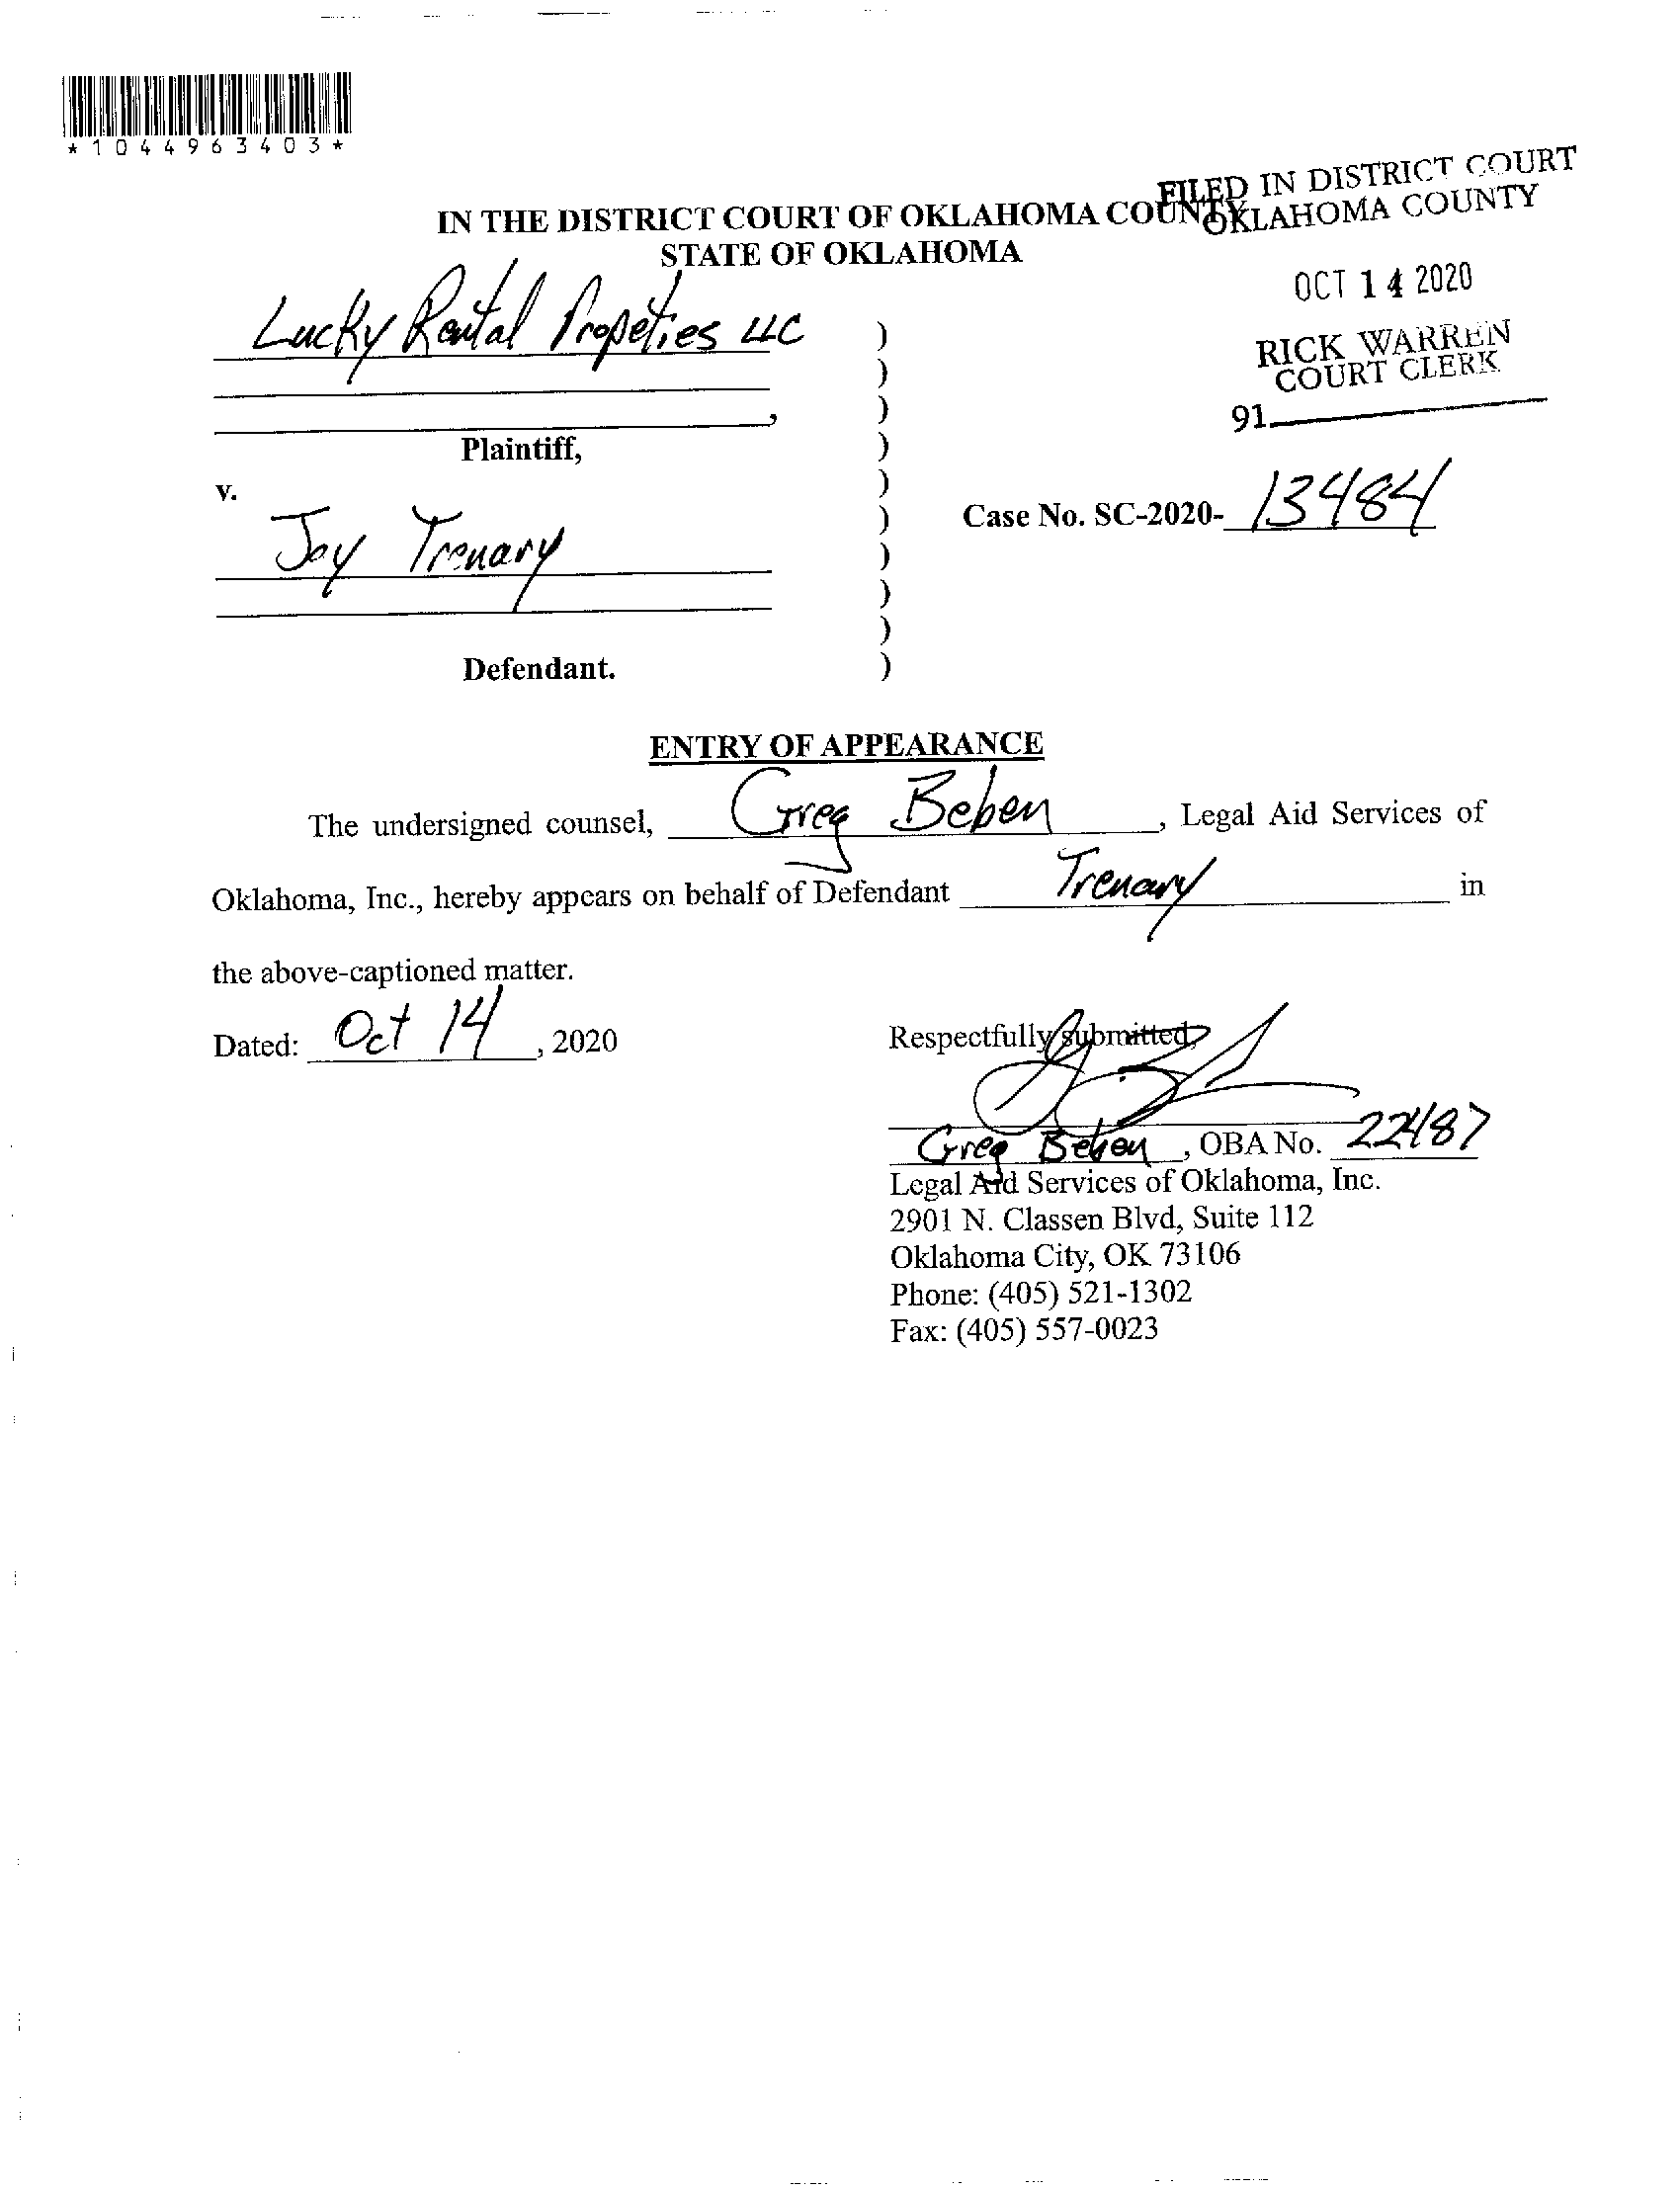 *1044963403*
FILED IN DISTRICT COURT
OKLAHOMA COUNTY
IN THE DISTRICT COURT OF OKLAHOMA COUNTY
STATE OF OKLAHOMA
OCT 14 2020
RICK WARREN
COURT CLERK
91
Lucky Rental Propeties LLC )
)
, )
Plaintiff, )
v. )
Case No. SC-2020- 13484 )
Joy Trenary )
)
)
Defendant. )
ENTRY OF APPEARANCE
The undersigned counsel, Greg Beben, Legal Aid Services of
Oklahoma, Inc., hereby appears on behalf of Defendant Trenary in
the above-captioned matter.
Dated: Oct 14, 2020
Respectfully submitted,
Greg Beben, OBA No. 22487
Legal Aid Services of Oklahoma, Inc.
2901 N. Classen Blvd, Suite 112
Oklahoma City, OK 73106
Phone: (405) 521-1302
Fax: (405) 557-0023